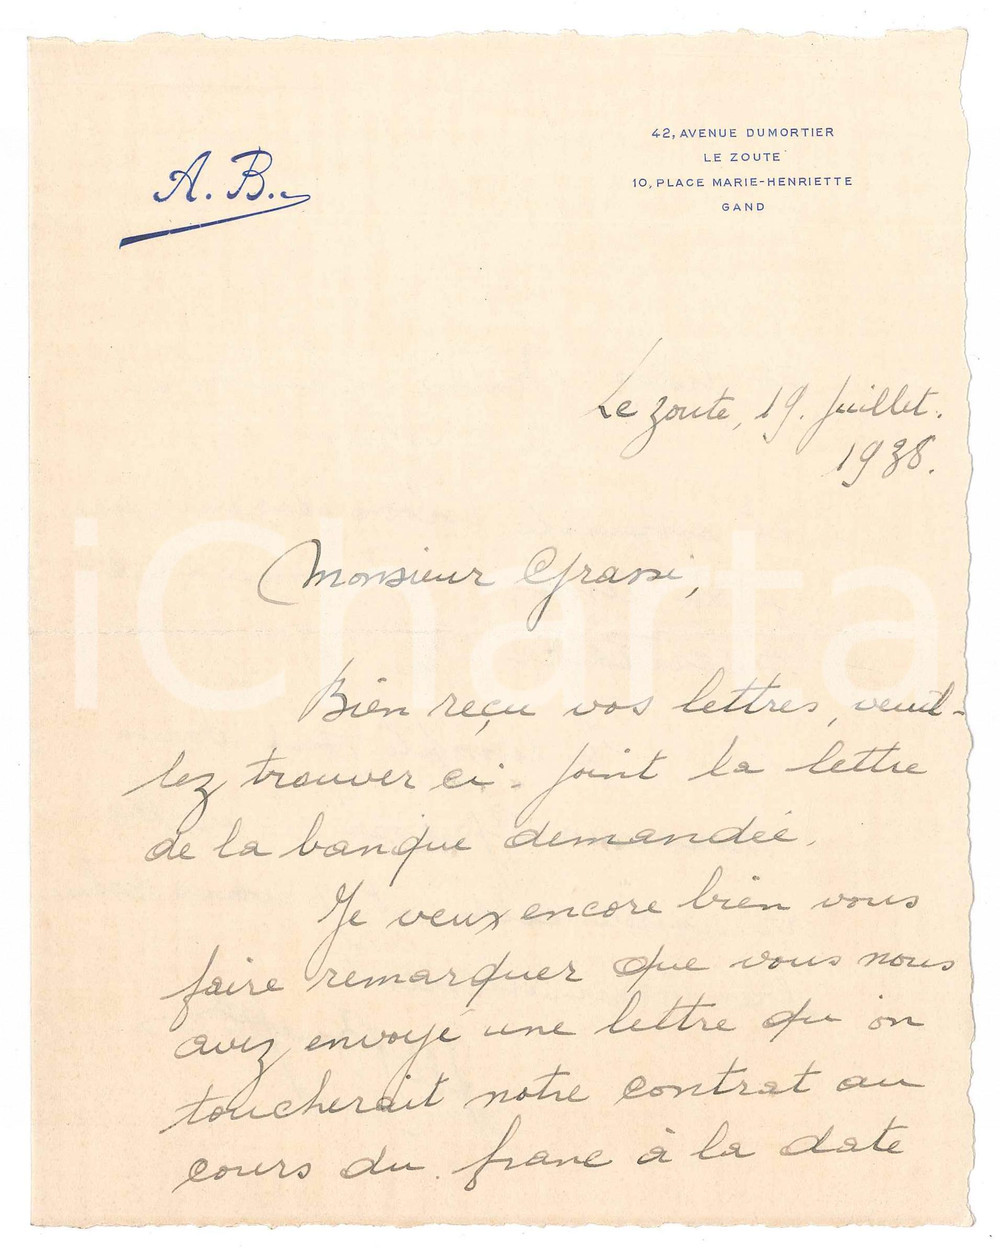 A. B.
42, AVENUE DUMORTIER
LE ZOUTE
10, PLACE MARIE-HENRIETTE
GAND
Le Zoute, 19. Juillet.
1938.
iCharta
Monsieur Grassi,
Bien reçu vos lettres, veuil-
lez trouver ci-joint la lettre
de la banque demandée.
Je veux encore bien vous
faire remarquer que vous nous
avez envoyé une lettre qu'on
toucherait notre contrat au
cours du franc à la date